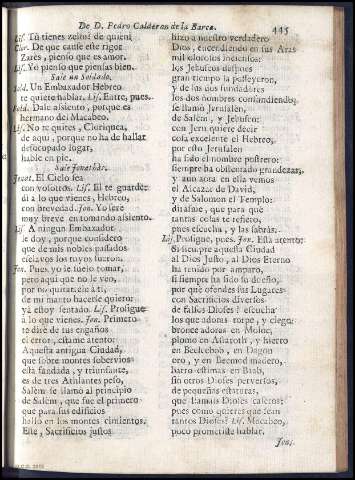 De D. Pedro Calderon de la Barca.
445
Lis. Tù tienes zelos? de quien?
Clor. De que cause este rigor
Zarès, pienso que es amor.
Lis. Yo pienso que piensas bien.
Sale un Soldado.
Sold. Un Embaxador Hebreo
te quiere hablar. Lis. Entre, pues.
Sold. Dale assiento, porque es
hermano del Macabeo.
Lis. No te quites, Cloriquea,
de aqui, porque no ha de hallar
desocupado lugar,
hable en pie.
Sale Jonathàs.
Jonat. El Cielo sea
con vosotros. Lis. El te guarde:
di à lo que vienes, Hebreo,
con brevedad. Jon. Yo serè
muy breve en tomando assiento.
Lis. A ningun Embaxador
le doy, porque considero
que de mis nobles passados
esclavos los tuyos fueron.
Jon. Pues yo le suelo tomar,
pero aqui que no le veo,
por no quitarsele à ti,
de mi manto hacerle quiero:
yà estoy sentado. Lis. Prosigue
à lo que vienes. Jon. Primero
te dirè de tus engaños
el error; estame atento:
Aquesta antigua Ciudad,
que sobre montes sobervios
està fundada, y triunfante,
es de tres Athlantes peso,
Salèm se llamò al principio
de Salèm, que fue el primero
que para sus edificios
hallò en los montes cimientos.
Este, Sacrificios justos
hizo à nuestro verdadero
Dios, encendiendo en sus Aras
mil olorosos inciensos:
los Jebuseos despues
gran tiempo la posseyeron,
y de sus dos fundadores
los dos nombres consumiendo,
se llamò Jerusalèn,
de Salèm, y Jebuseo:
con Jeru quiere decir
cosa excelente el Hebreo,
por esto Jerusalèn
ha sido el nombre postrero:
siempre ha obstentado grandezas,
y aun aora en ella vemos
el Alcazar de David,
y de Salomon el Templo:
diràsme, que para què
tantas cosas te refiero,
pues escucha, y las sabràs.
Lis. Prosigue, pues. Jon. Està atento:
Si siempre aquesta Ciudad
al Dios Justo, al Dios Eterno
ha tenido por amparo,
si siempre ha sido su dueño,
por què ofendes sus Lugares
con Sacrificios diversos
de falsos Dioses? escucha
los que adoras torpe, y ciego:
bronce adoras en Moloc,
plomo en Astaroth, y hierro
en Beelcebob, en Dagon
oro, y en Beemod madero,
barro estimas en Baab,
sin otros Dioses perversos,
de pequeñas estaturas,
que llamais Dioses caseros;
pues como quieres que sean
tantos Dioses? Lis. Macabeo,
poco prometiste hablar.
Jon.